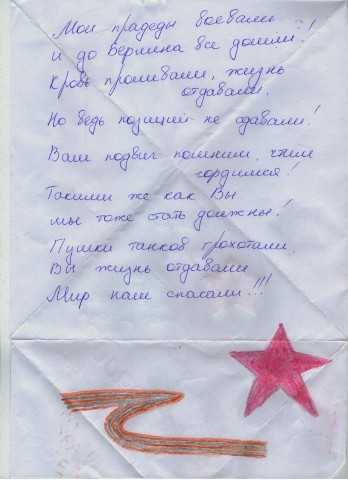 Мои прадеды воевали
и до Берлина все дошли!
Кровь проливали, жизнь
отдавали,
Но ведь позиций не сдавали!
Ваш подвиг помним, чтим
гордимся!
Такими же как Вы
мы тоже стать должны!
Пушки танков грохотали,
Вы жизнь отдавали
Мир нам спасали!!!